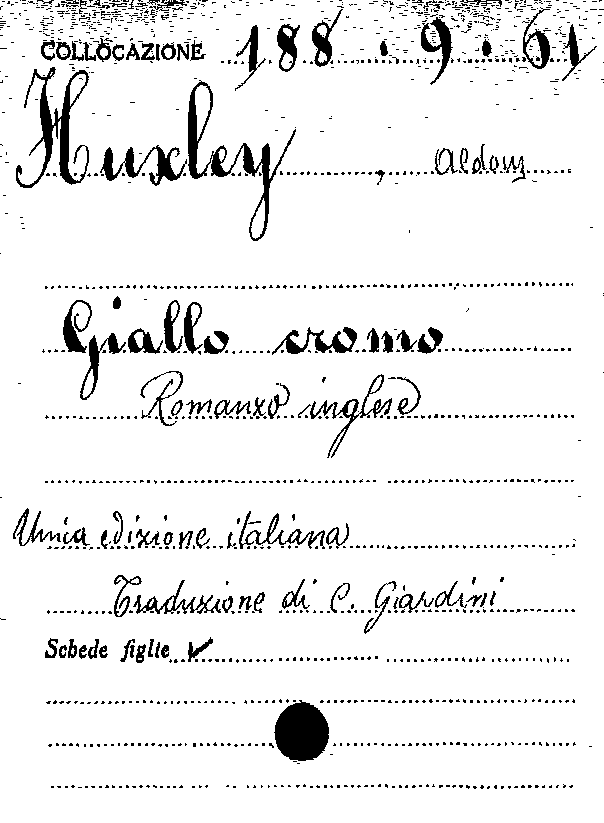 COLLOCAZIONE 188.9.61
Huxley, Aldous
Giallo cromo
Romanzo inglese
Unica edizione italiana
Traduzione di C. Giardini
Schede figlie ✓